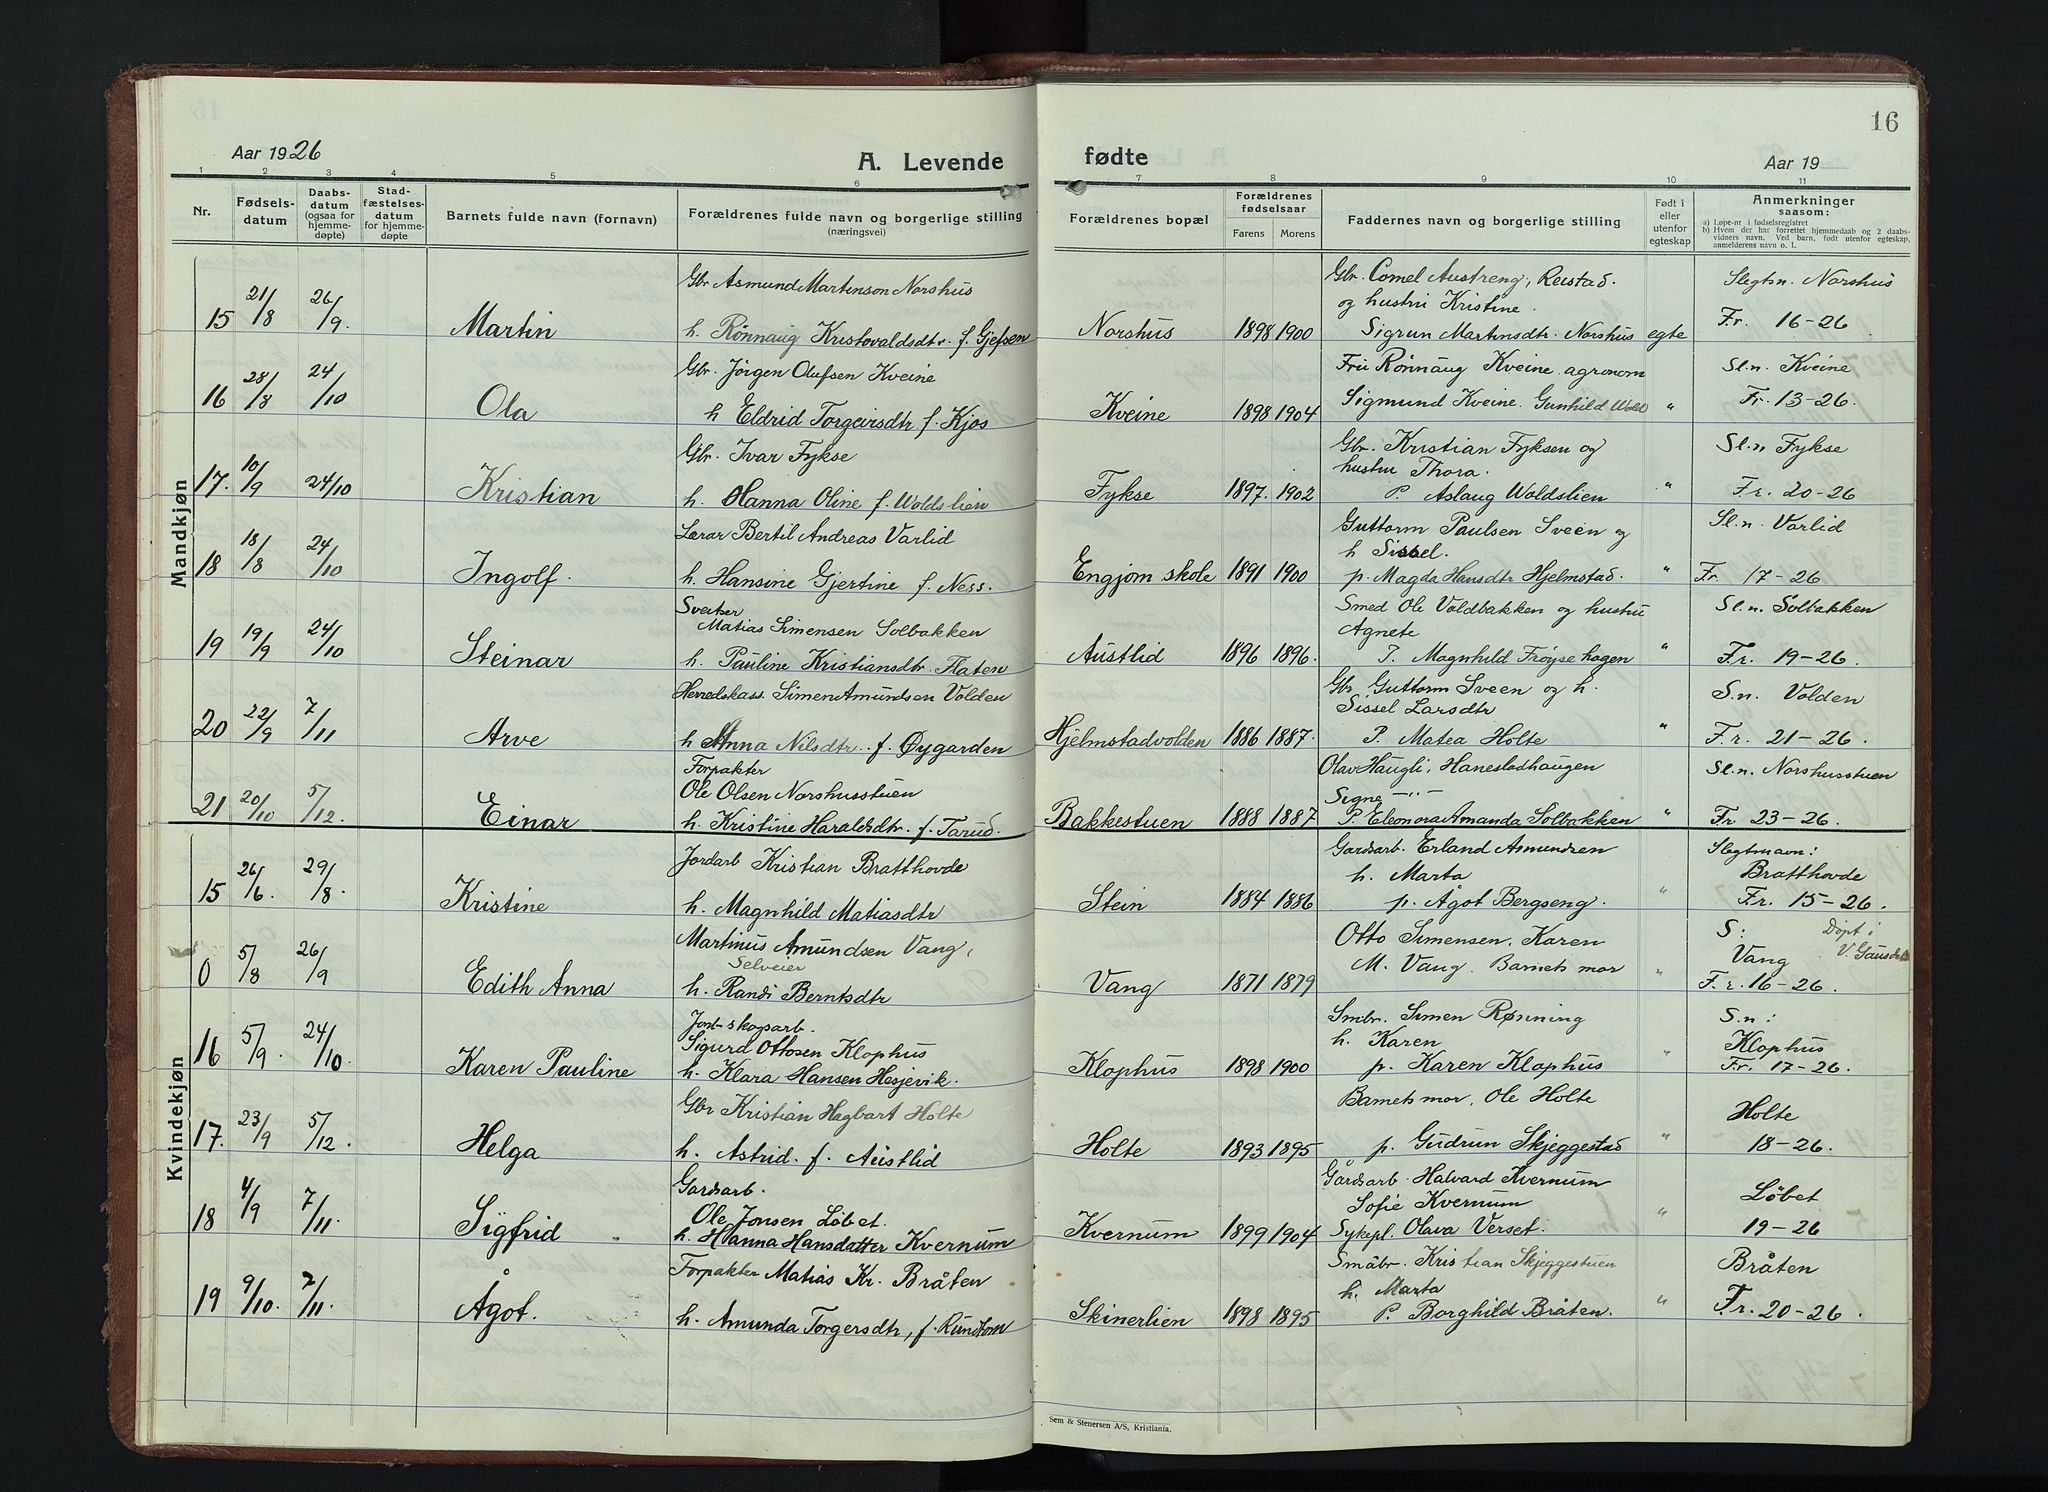 16
Aar 1926
A. Levende
fødte
Aar 19
1 2 3 4 5 6 7 8 9 10 11
Nr.
Fødselsdatum
Daabsdatum (ogsaa for hjemmedøpte)
Stadfæstelsesdatum for hjemmedøpte
Barnets fulde navn (fornavn)
Forældrenes fulde navn og borgerlige stilling (næringsvei)
Forældrenes bopæl
Forældrenes fødselsaar
Farens Morens
Faddernes navn og borgerlige stilling
Født i eller utenfor egteskap
Anmerkninger saasom:
a) Løpe-nr. i fødselsregistret
b) Hvem der har forrettet hjemmedaab og 2 daabsvidners navn. Ved barn, født utenfor egteskap, anmelderens navn o. l.
Mandkjøn
Gbr Asmund Martinson Norshus Gbr. Cornel Austreng, Reistad. Slegtsn. Norshus
og hustru Kristine.
15 21/8 26/9. Martin h. Rønnaug Kristovaldsdtr. f. Gjefsen Norshus 1898 1900 Sigrun Martinsdtr. Norshus egte Fr. 16-26
Gbr. Jörgen Olufsen Kveine Fru Rønnaug Kveine. agronom Sl.n. Kveine
16 28/8 24/10 Ola h Eldrid Torgeirsdtr f. Kjos Kveine 1898 1904 Sigmund Kveine. Gunhild Wold " Fr. 13-26.
Gbr. Ivar Fykse Gbr. Kristian Fyksen og Sl.n. Fykse
hustru Thora.
17. 10/9 24/10 Kristian h. Hanna Oline f. Woldslien Fykse 1897. 1902 P. Aslaug Woldslien " Fr. 20-26
Lærar Bertil Andreas Varlid Guttorm Paulsen Sveen og Sl.n. Varlid
h Sissel.
18 18/8 24/10 Ingolf. h. Hansine Gjertine f. Ness. Engjom skole 1891 1900 p. Magda Hansdtr Hjelmstad. " Fr 17-26
Sveitser Smed Ole Voldbakken og hustru Sl.n. Solbakken
Matias Simensen Solbakken Agnete
19 19/9 24/10 Steinar h. Pauline Kristiansdtr. Flaten Austlid 1896 1896. P. Magnhild Frøysehagen " Fr. 19-26.
Herredskass. Simen Amundsen Volden Gbr Guttorm Sveen og h. S.n. Volden
Sissel Larsdtr
20 22/9 7/11 Arve h Anna Nilsdtr. f. Øygarden Hjelmstadvolden 1886 1887. P. Matea Holte " F.r. 21-26.
Forpakter Olav Haugli, Hanestadhaugen Sl.n. Norshusstuen
Ole Olsen Norshusstuen Signe -"-
21 20/10 5/12. Einar h. Kristine Haraldsdtr. f. Tarud. Bakkestuen 1888 1887 P. Eleonora Amanda Solbakken " Fr 23-26.
Kvindekjøn
Jordarb Kristian Bratthovde Gardsarb. Erland Asmundsen Slegtsnavn:
h. Marta Bratthovde
15 26/6. 29/8. Kristine h. Magnhild Matiasdtr Stein 1884 1886 p. Ågot Bergseng. " Fr. 15-26.
Martinus Amundsen Vang, Otto Simensen. Karen S: Döpt i
Selveier V. Gausdal
0 5/8 26/9 Edith Anna h. Randi Berntsdtr Vang 1871 1879 M. Vang. Barnets mor " Vang F.r. 16-26.
Jord-skogsarb. Smbr. Simen Rønning S.n:
Sigurd Ottosen Klophus h. Karen Klophus
16 5/9. 24/10. Karen Pauline h. Klara Hansen Hesjevik. Klophus 1898 1900 p. Karen Klophus " Fr. 17-26.
Gbr Kristian Hagbart Holte Barnets mor, Ole Holte Holte
17. 23/9 5/12. Helga h. Astrid. f. Austlid Holte 1893 1895 p. Gudrun Skjeggestad " 18-26.
Gardsarb. Gårdsarb. Halvard Kvernum
Ole Jonsen Løbet. Sofie Kvernum Løbet
18 4/9 7/11. Sigfrid h. Hanna Hansdatter Kvernum Kvernum 1899 1904 Sykepl. Olava Verset. " 19-26
Forpakter Matias Kr. Bråten Småbr. Kristian Skjeggestuen Bråten
h. Marta
19 9/10. 7/11. Ågot. h. Amunda Torgersdtr, f. Rundtom Skinerlien 1898 1895 P. Borghild Bråten. " Fr. 20-26.
Sem & Stenersen A/S, Kristiania.